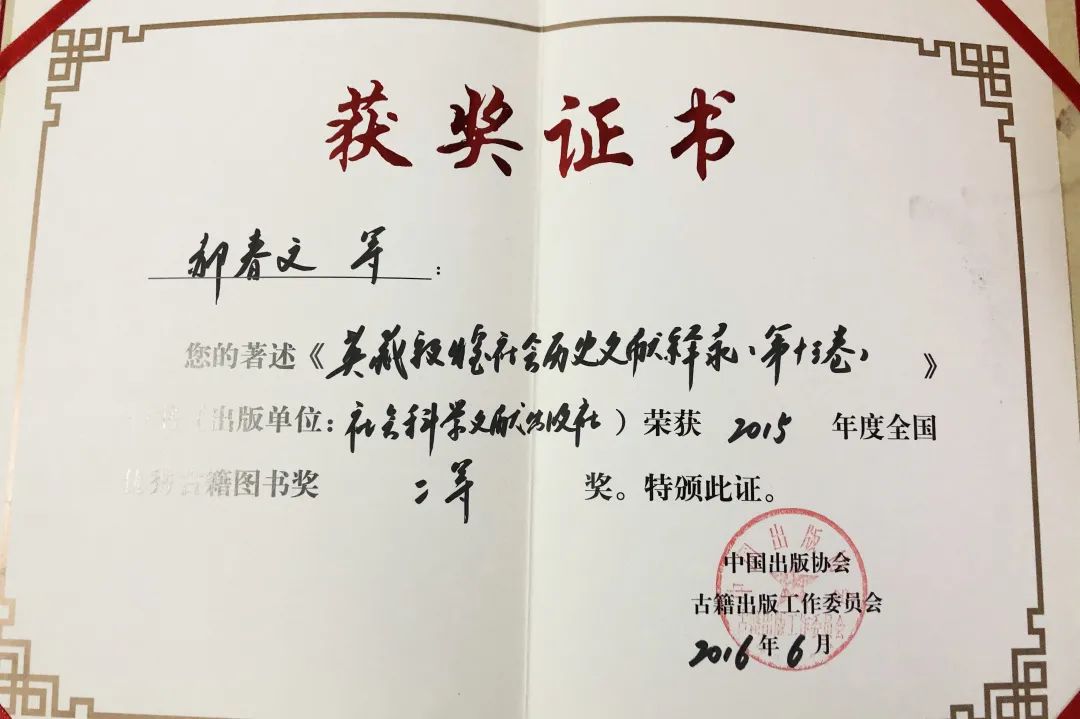 获奖证书
郝春文 等：
您的著述《英藏敦煌社会历史文献释录（第十三卷）》
出版单位：社会科学文献出版社）荣获 2015 年度全国
优秀古籍图书奖 二等 奖。特颁此证。
中国出版协会
古籍出版工作委员会
2016年6月